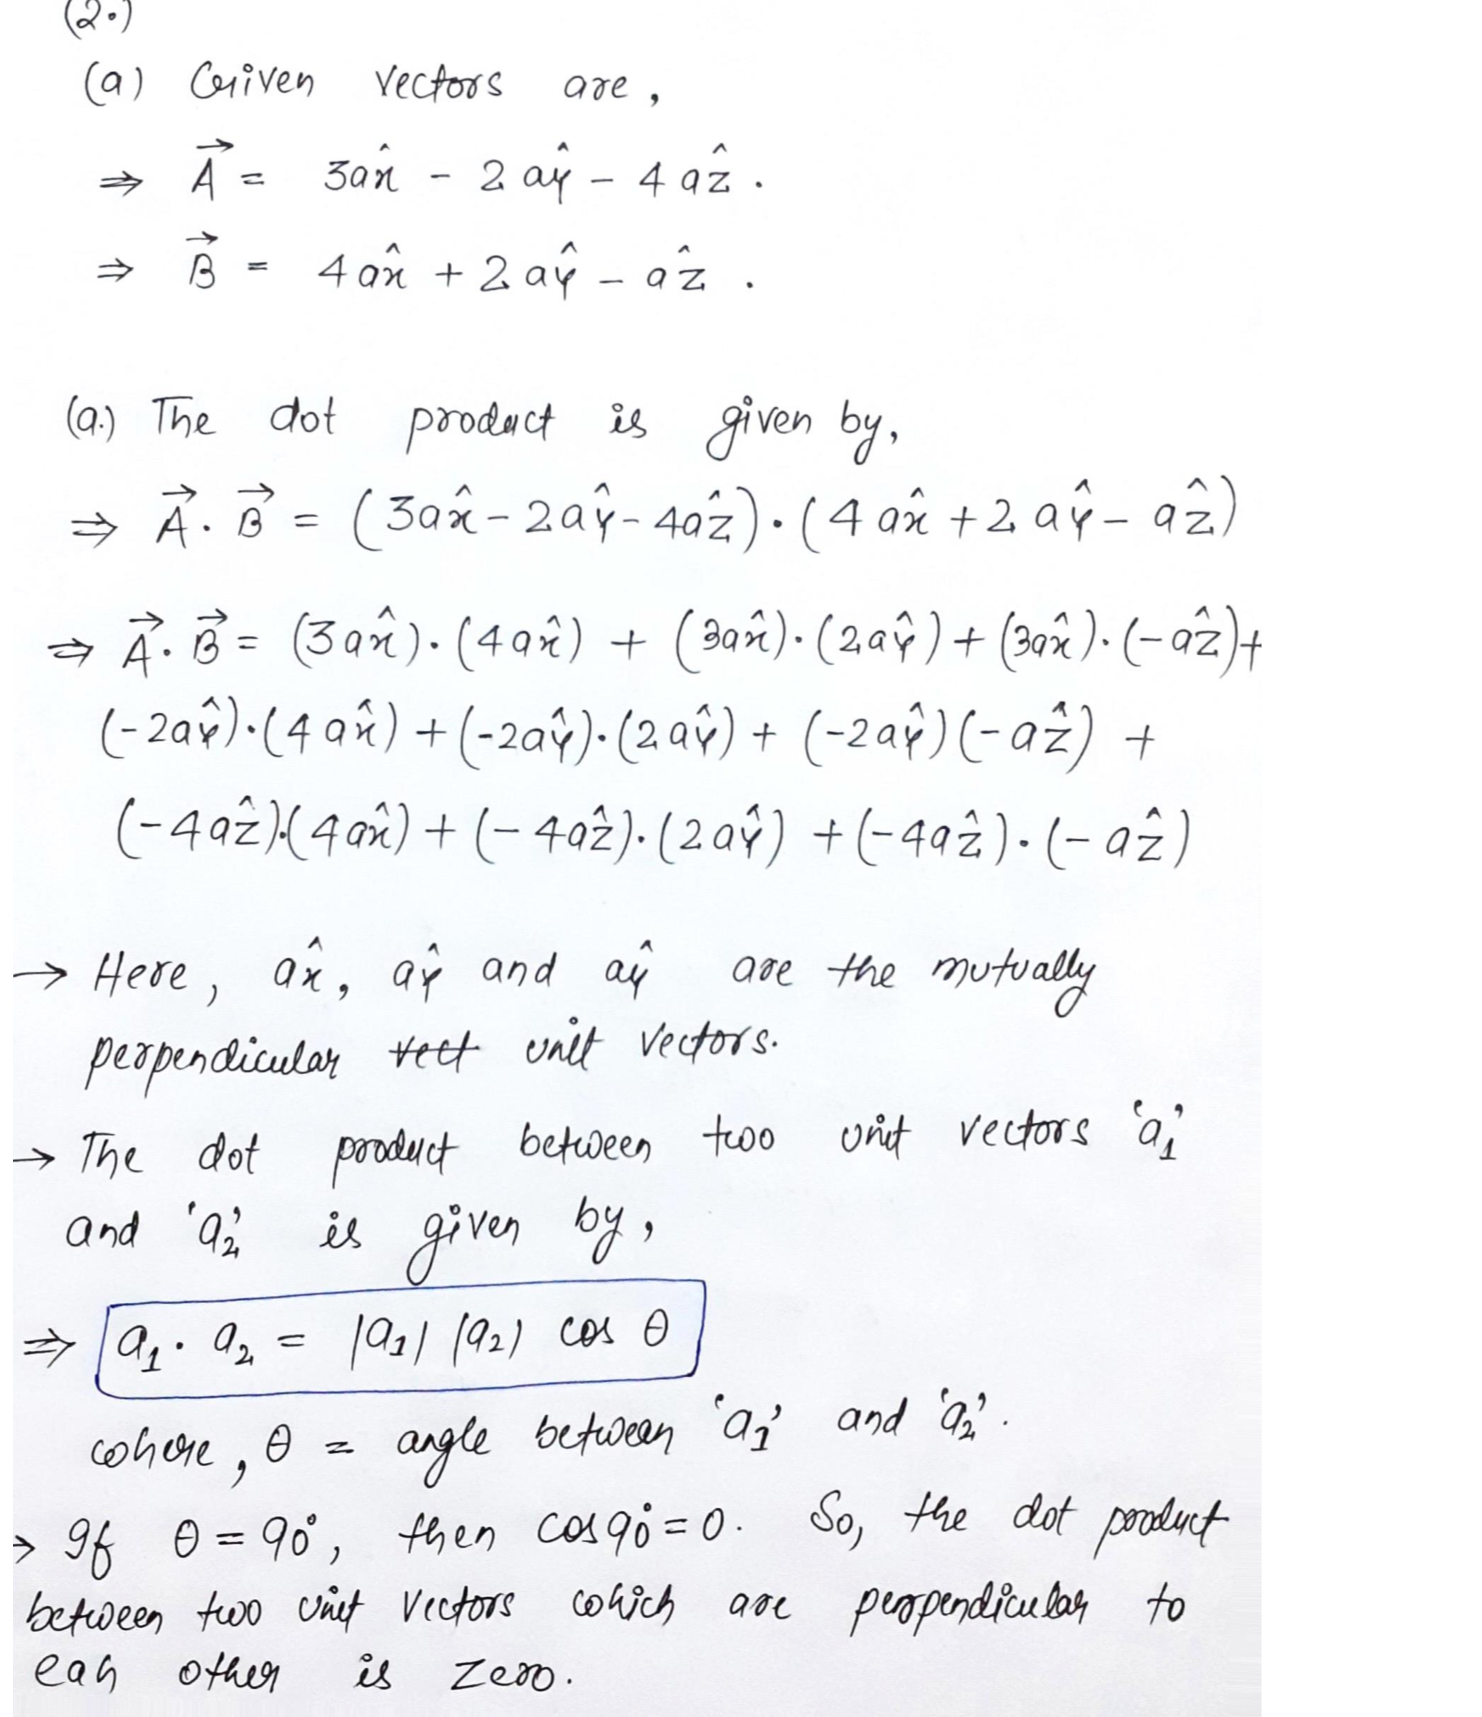 (2.)
(a) Given vectors are,
⇒ A⃗ = 3ax̂ - 2aŷ - 4aẑ.
⇒ B⃗ = 4ax̂ + 2aŷ - aẑ.
(a.) The dot product is given by,
⇒ A⃗. B⃗ = (3ax̂ - 2aŷ - 4aẑ)·(4ax̂ + 2aŷ - aẑ)
⇒ A⃗. B⃗ = (3ax̂)·(4ax̂) + (3ax̂)·(2aŷ) + (3ax̂)·(-aẑ)+
(-2aŷ)·(4ax̂) + (-2aŷ)·(2aŷ) + (-2aŷ)(-aẑ) +
(-4aẑ)·(4ax̂) + (-4aẑ)·(2aŷ) + (-4aẑ)·(-aẑ)
→ Here, ax̂, aŷ and aŷ are the mutually
perpendicular vect unit vectors.
→ The dot product between two unit vectors 'a₁'
and 'a₂' is given by,
⇒ a₁· a₂ = |a₁| |a₂| cos θ
where, θ = angle between 'a₁' and 'a₂'.
→ If θ = 90°, then cos90° = 0. So, the dot product
between two unit vectors which are perpendicular to
eah other is zero.